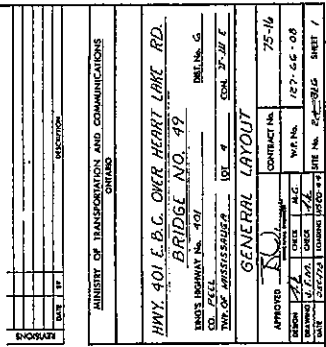 REVISIONS
DATE BY DESCRIPTION
MINISTRY OF TRANSPORTATION AND COMMUNICATIONS
ONTARIO
HWY. 401 E.B.C. OVER HEART LAKE RD.
BRIDGE NO. 49
KING'S HIGHWAY No. 401 DIST. No. 6
CO. PEEL
TWP. OF MISSISSAUGA LOT 4 CON.
GENERAL LAYOUT
APPROVED CONTRACT No. 75-16
DESIGN CHECK W.P. No. 127-66-08
DRAWING CHECK
DATE LOADING SITE No. SHEET 1